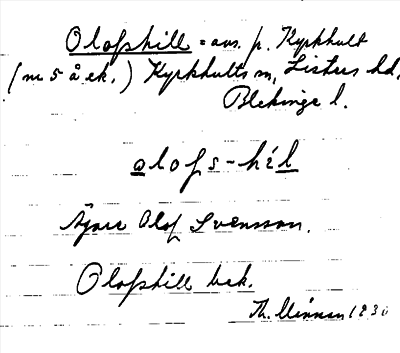 Olofshill = avs. p. Kyrkhult
(nr 5 å ek.) Kyrkhults sn, Listers hd,
Blekinge l.
olofs-hil
Ägare Olof Svensson.
Olofshill bek.
Th.